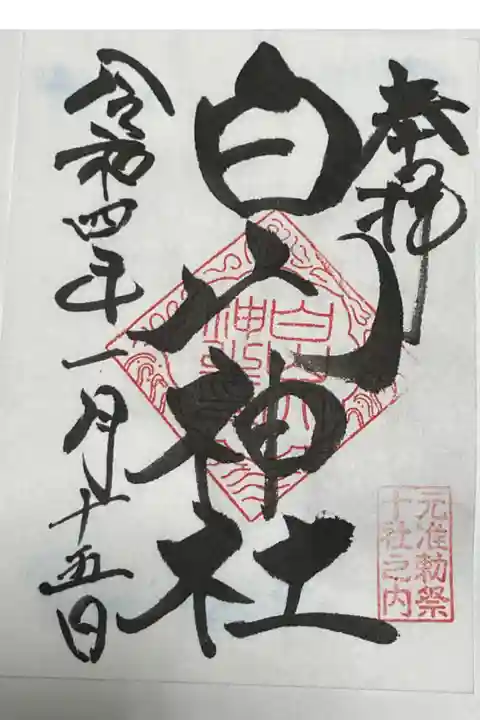 奉拝
白山神社
令和四年一月十五日
元准勅祭
十社之内
白山
神社